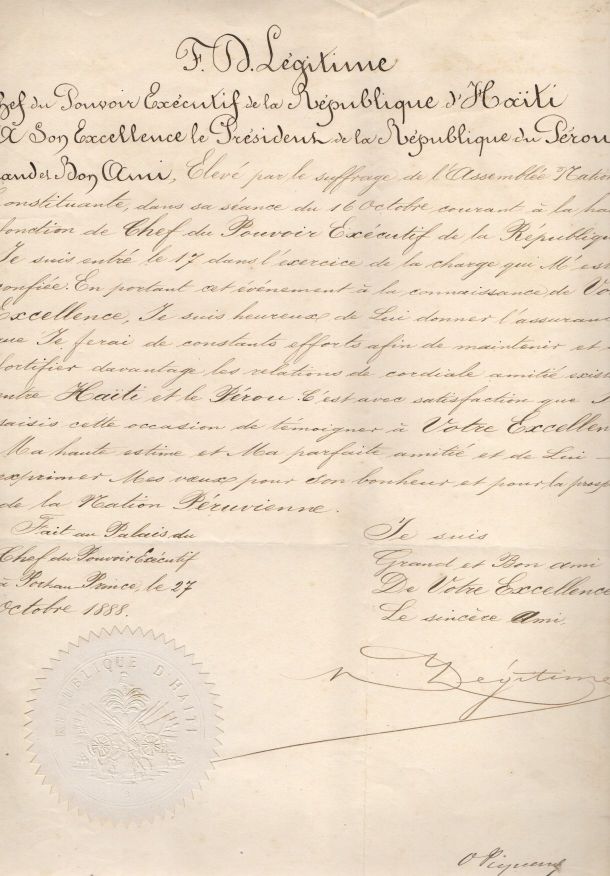 F. D. Légitime
hef du Pouvoir Exécutif de la République d'Haïti
À Son Excellence le Président de la République du Pérou
and et Bon Ami, Élevé par le suffrage de l'Assemblée Nation
Constituante, dans sa séance du 16 Octobre courant à la hau
fonction de Chef du Pouvoir Exécutif de la République
Je suis entré le 17 dans l'exercice de la charge qui M'est
confiée. En portant cet événement à la connaissance de Vo
Excellence, Je suis heureux de Lui donner l'assuran
que Je ferai de constants efforts afin de maintenir et
fortifier davantage les relations de cordiale amitié exist
entre Haïti et le Pérou. C'est avec satisfaction que J
saisis cette occasion de temoigner à Votre Excellen
Ma haute estime et Ma parfaite amitié et de Lui
exprimer Mes vœux pour Son bonheur et pour la prosp
de la Nation Péruvienne.
Fait au Palais du
Chef du Pouvoir Exécutif
à Port au Prince, le 27
Octobre 1888.
Je suis
Grand et Bon ami
De Votre Excellence
Le sincère Ami.
Légitime
RÉPUBLIQUE D'HAITI